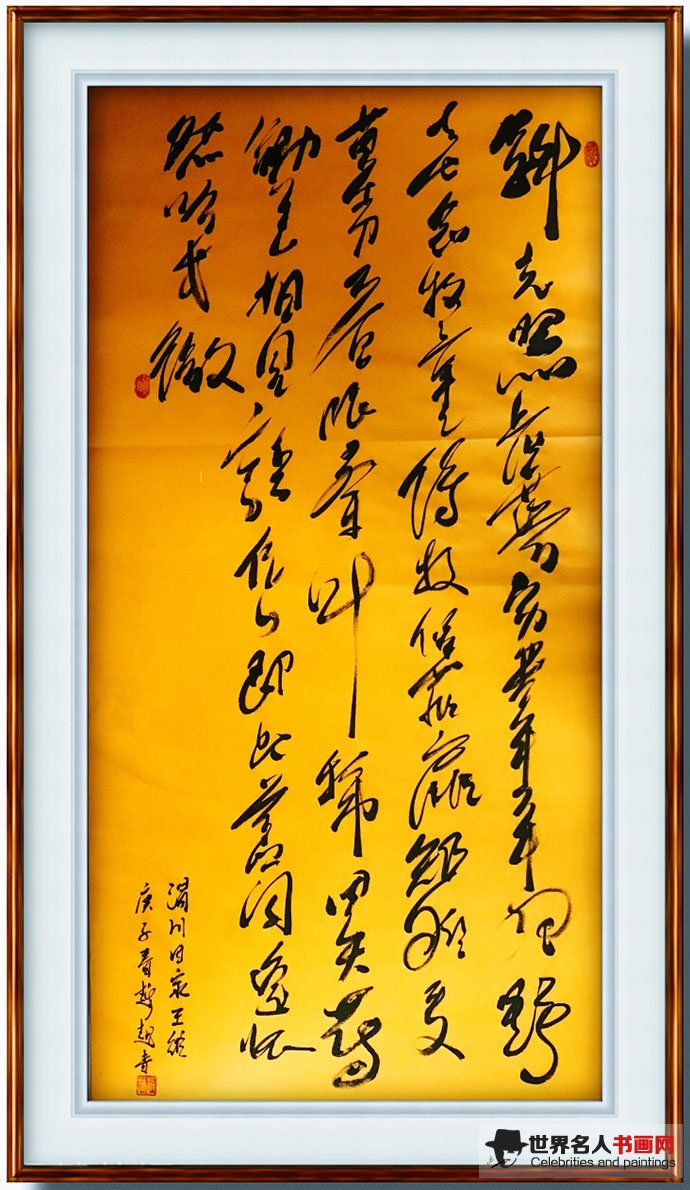 斜光照墟落窮巷牛羊歸野
老念牧童倚杖候荆扉雉雊麥
苗秀蠶眠桑叶稀田夫荷
鋤至相見語依依即此羨閑逸悵
然吟式微
渭川田家王維
庚子春書
世界名人书画网
Celebrities and paintings